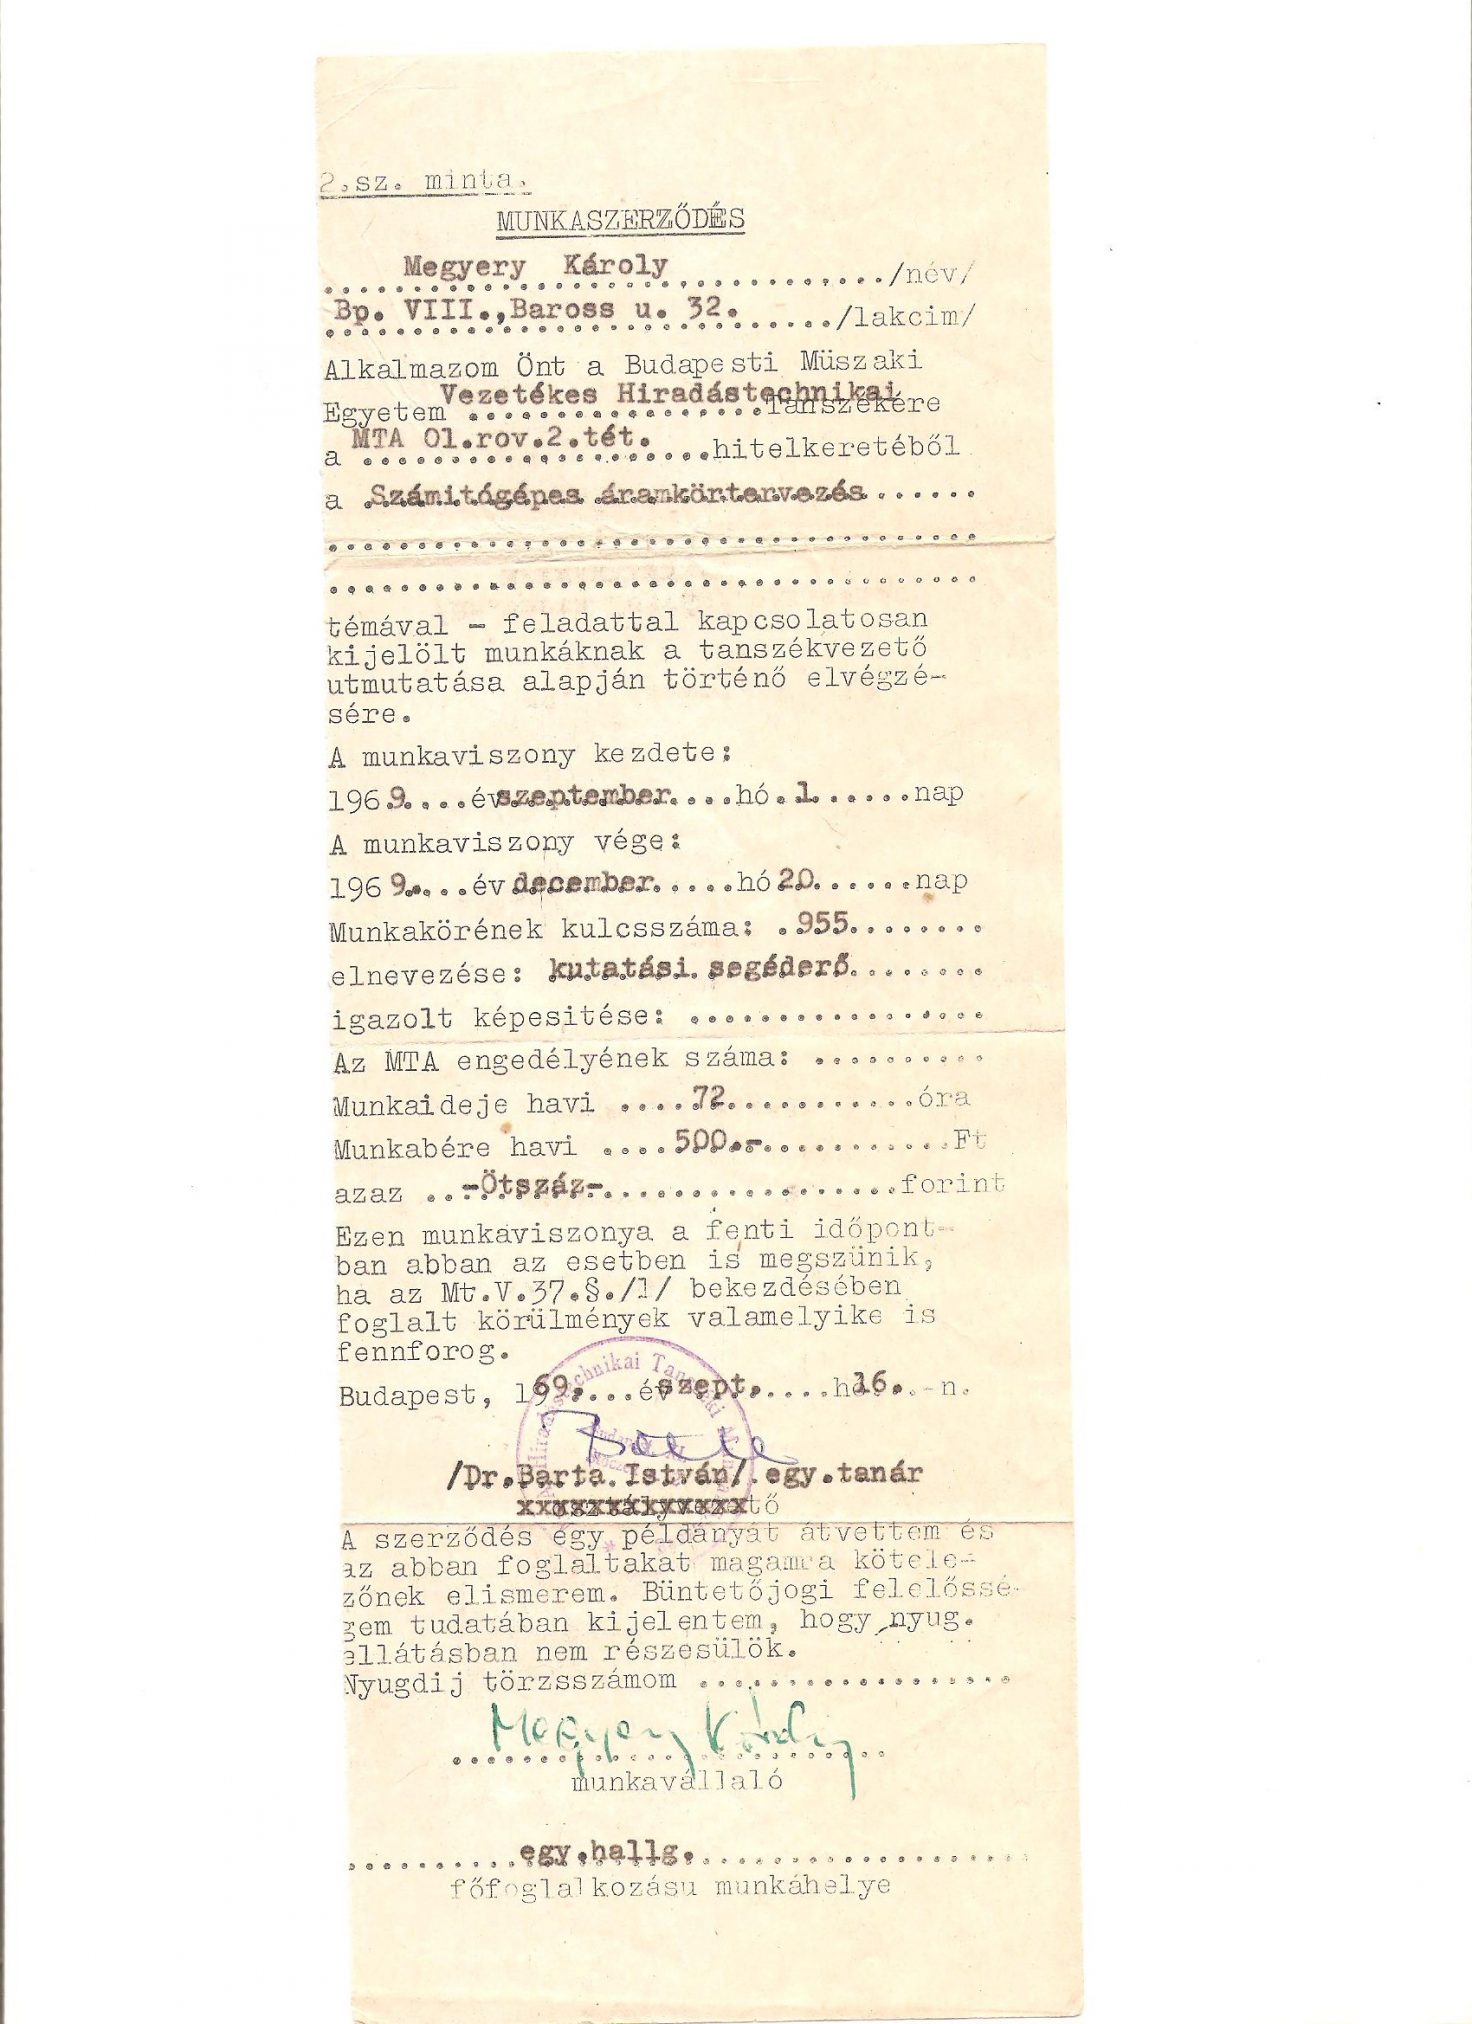 2.sz. minta.
MUNKASZERZŐDÉS
Megyery Károly ............/név/
Bp. VIII.,Baross u. 32. ....../lakcim/
Alkalmazom Önt a Budapesti Müszaki
Vezetékes Hiradástechnikai
Egyetem .................Tanszékére
a MTA 01.rov.2.tét. ....hitelkeretéből
a Számitógépes áramkörtervezés.......
.....................................
.....................................
témával - feladattal kapcsolatosan
kijelölt munkáknak a tanszékvezető
utmutatása alapján történő elvégzé-
sére.
A munkaviszony kezdete:
1969....év szeptember....hó.1......nap
A munkaviszony vége:
1969....év december.....hó 20......nap
Munkakörének kulcsszáma: .955........
elnevezése: kutatási segéderő........
igazolt képesitése: .................
Az MTA engedélyének száma: ..........
Munkaideje havi ....72...........óra
Munkabére havi ....500.-...........Ft
azaz ..-Ötszáz-.................forint
Ezen munkaviszonya a fenti időpont-
ban abban az esetben is megszünik,
ha az Mt.V.37.§./1/ bekezdésében
foglalt körülmények valamelyike is
fennforog.
Budapest, 1969....év szept.....hó 16..-n.
/Dr.Barta István/ egy.tanár
osztályvezető
A szerződés egy példányát átvettem és
az abban foglaltakat magamra kötele-
zőnek elismerem. Büntetőjogi felelőssé-
gem tudatában kijelentem, hogy nyug.
ellátásban nem részesülök.
Nyugdij törzsszámom ..................
Megyery Károly
munkavállaló
..........egy.hallg...................
főfoglalkozásu munkáhelye